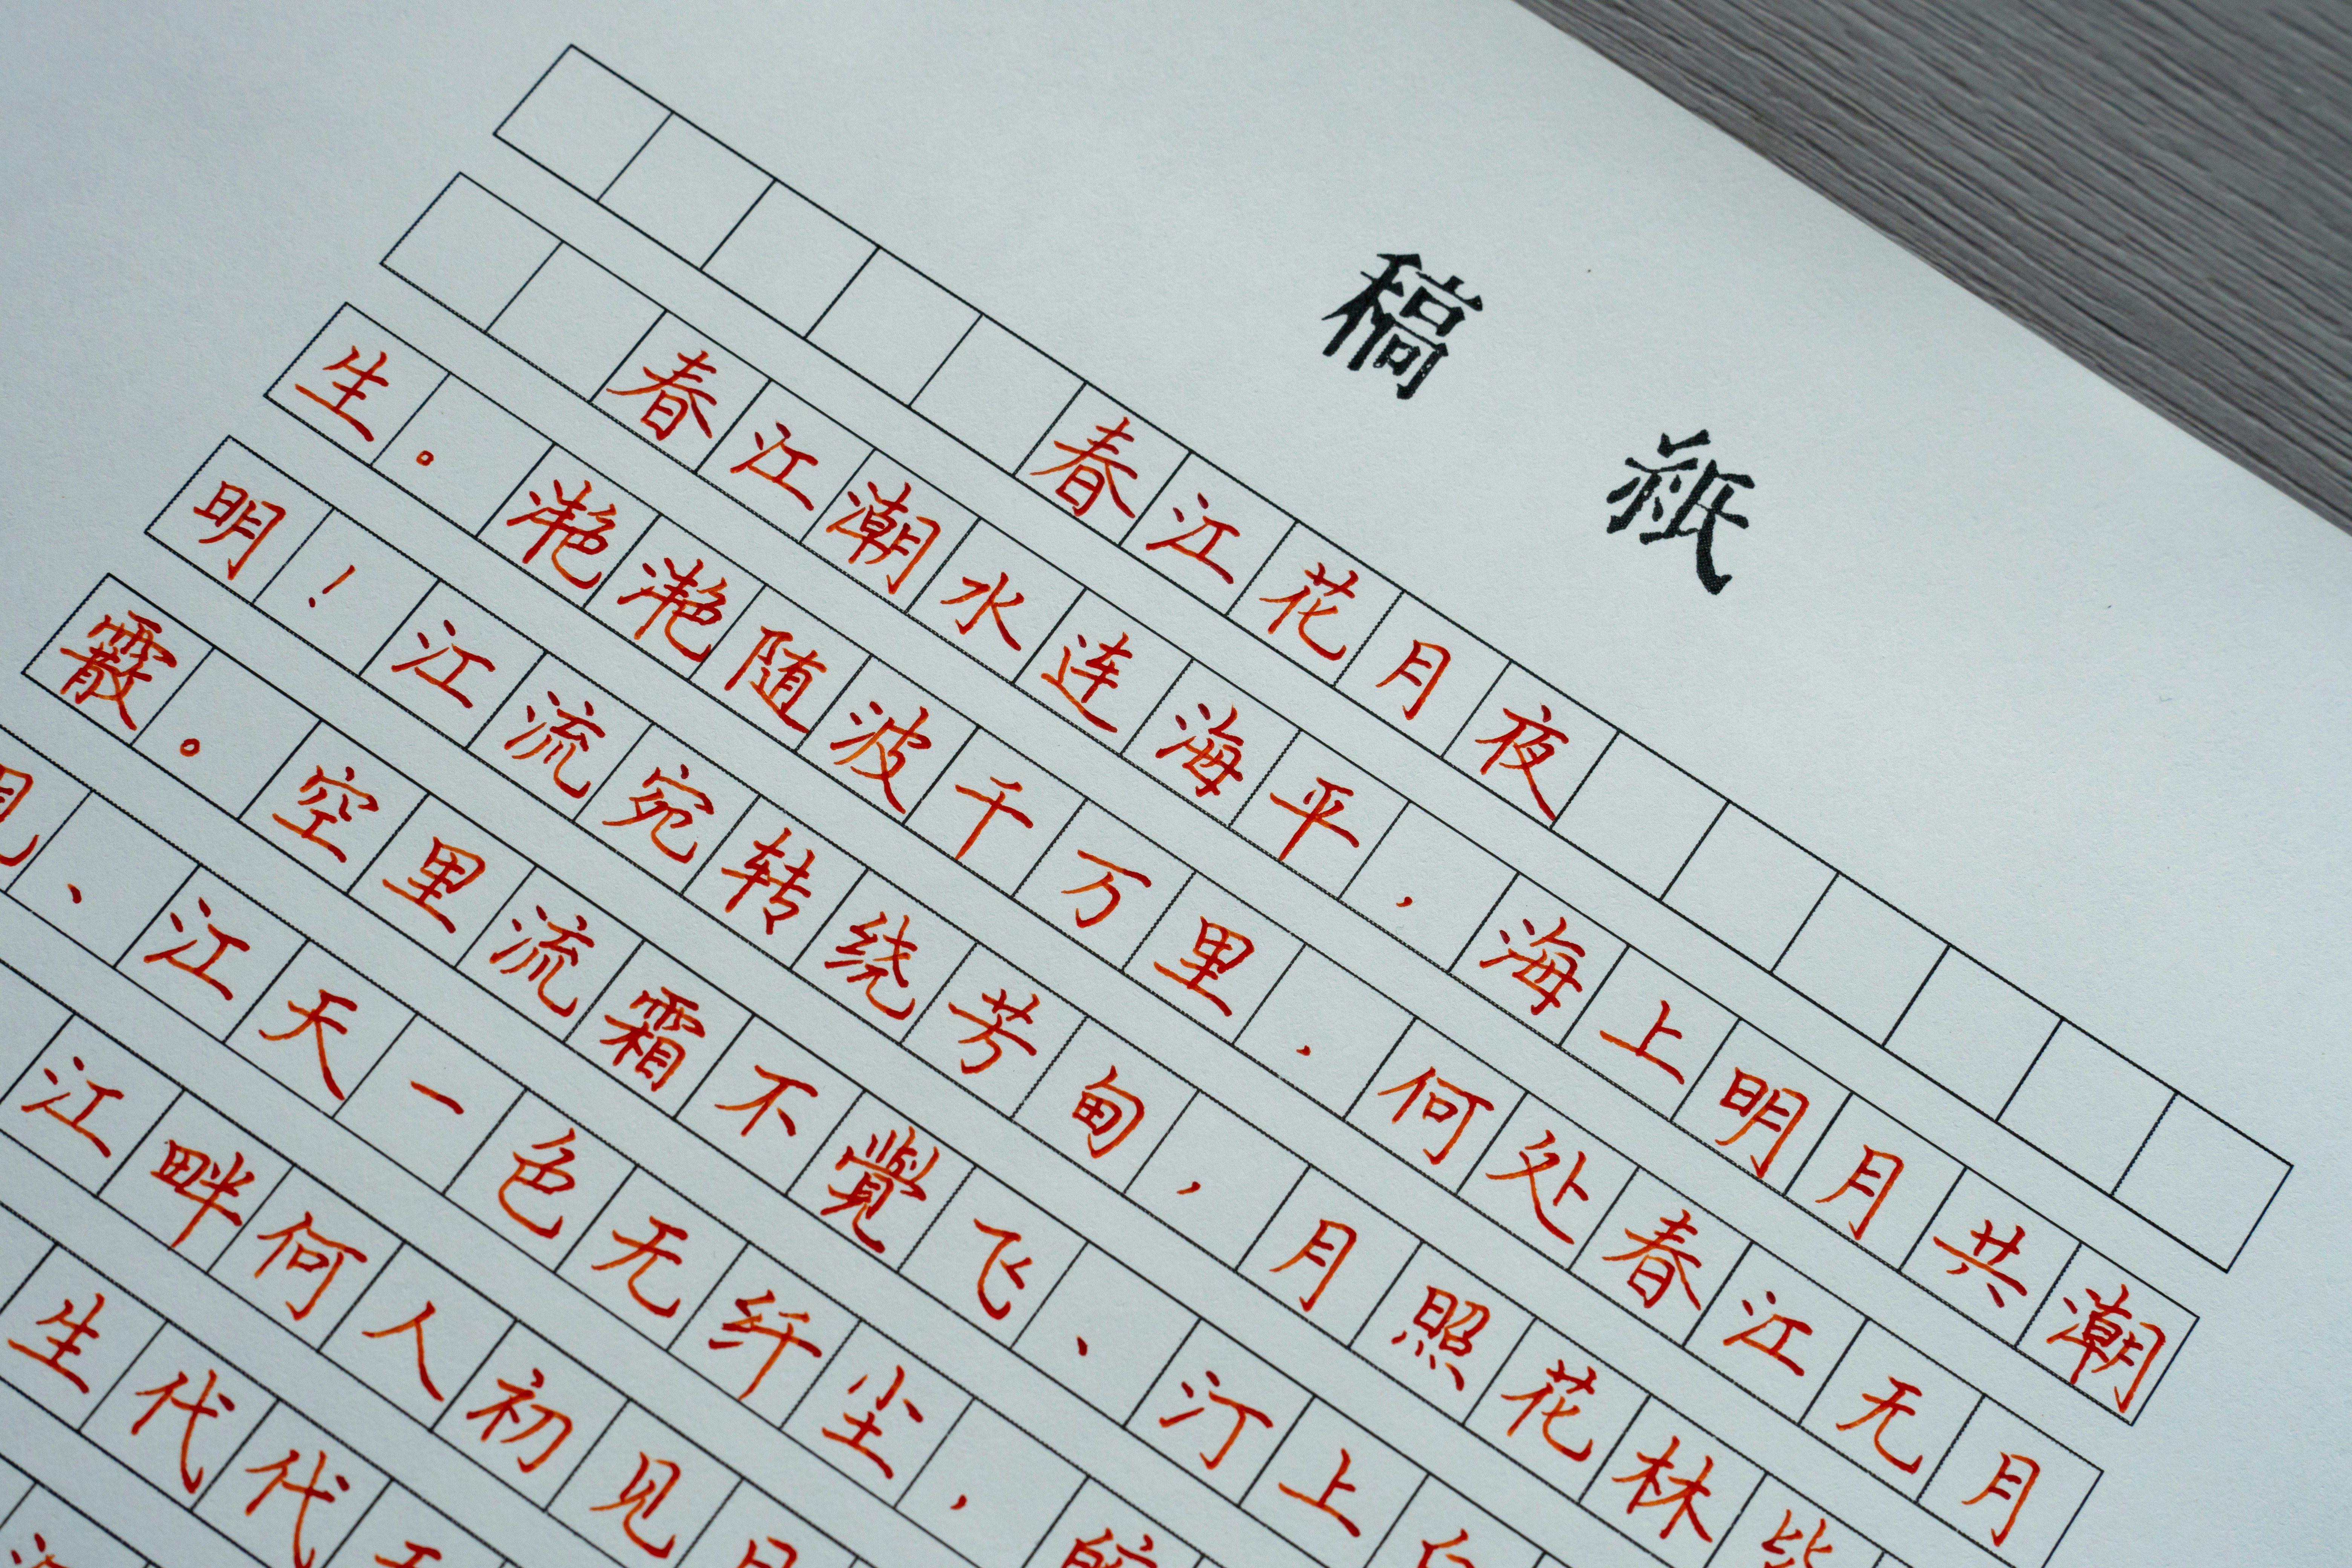 稿紙
春江花月夜
春江潮水连海平,海上明月共潮
生。滟滟随波千万里,何处春江无月
明!江流宛转绕芳甸,月照花林皆
霰。空里流霜不覺飞、汀上白
见、江天一色无纤尘,
江畔何人初见月
生代代无